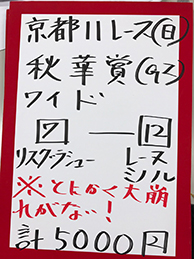 京都11レース(日)
秋華賞(G2)
ワイド
7 — 12
リスグラシュー レース
シルル
※とにかく大崩
れがない!
計5000円